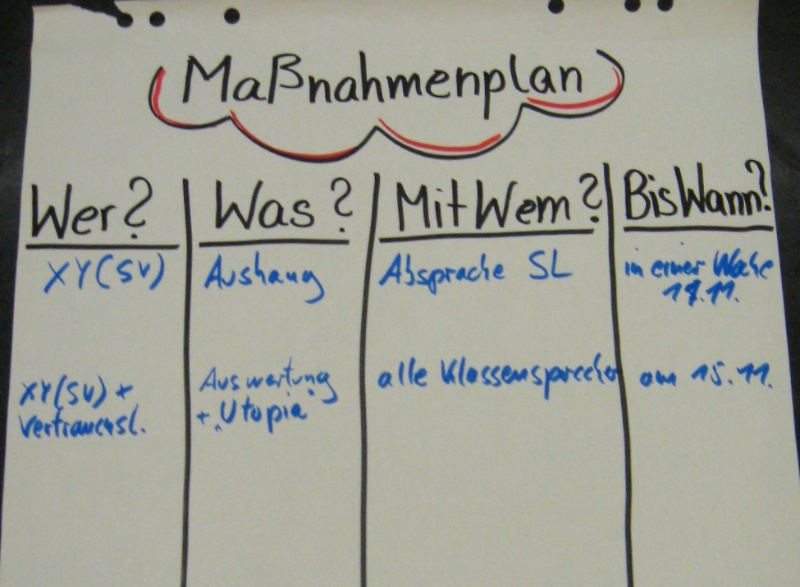 Maßnahmenplan
Wer?
Was?
Mit Wem?
Bis Wann?
XY (SV)
Aushang
Absprache SL
in einer Woche
XY (SV) +
Vertrauensl.
Auswertung
+ „Utopia“
alle Klassensprecher
am 15.11.